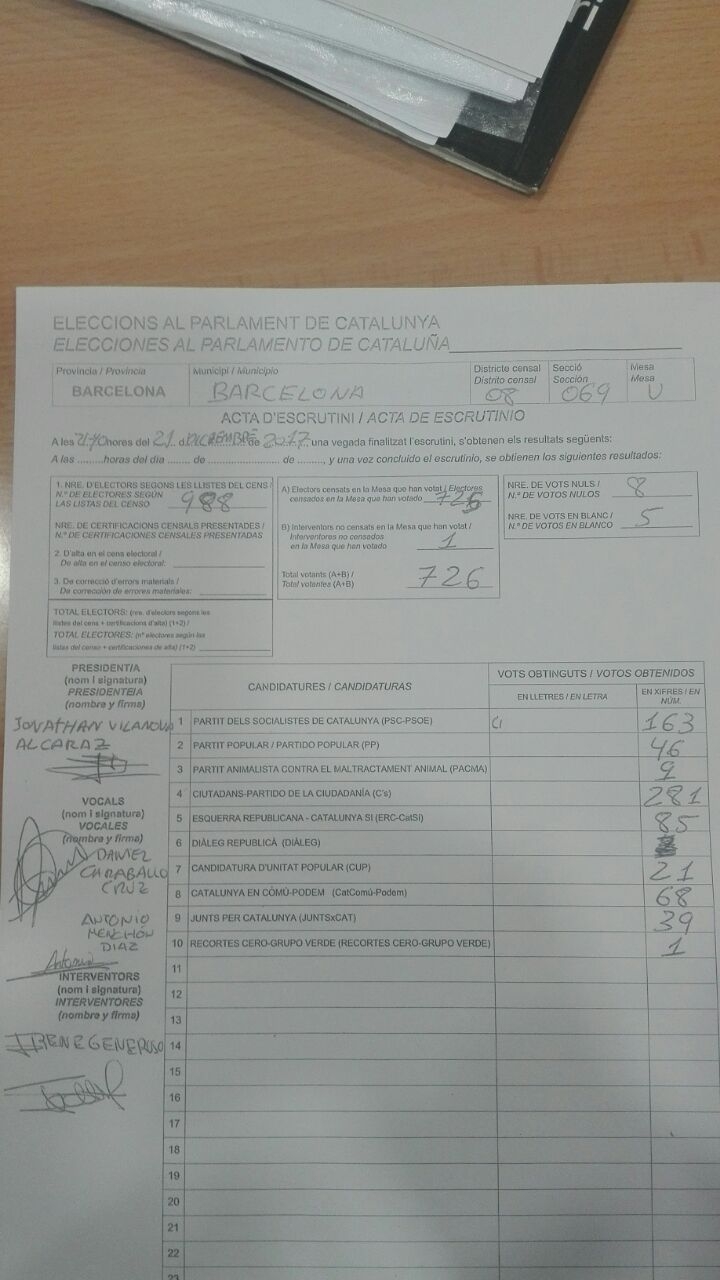 ELECCIONS AL PARLAMENT DE CATALUNYA
ELECCIONES AL PARLAMENTO DE CATALUÑA
Província / Provincia
BARCELONA
Municipi / Municipio
BARCELONA
Districte censal
Distrito censal
08
Secció
Sección
069
Mesa
Mesa
U
ACTA D'ESCRUTINI / ACTA DE ESCRUTINIO
A les 21:40 hores del 21 d DICIEMBRE de 2017, una vegada finalitzat l'escrutini, s'obtenen els resultats següents:
A las .........horas del día ....... de .......................... de ........, y una vez concluido el escrutinio, se obtienen los siguientes resultados:
1. NRE. D'ELECTORS SEGONS LES LLISTES DEL CENS /
N.º DE ELECTORES SEGÚN
LAS LISTAS DEL CENSO 988
NRE. DE CERTIFICACIONS CENSALS PRESENTADES /
N.º DE CERTIFICACIONES CENSALES PRESENTADAS
2. D'alta en el cens electoral /
De alta en el censo electoral:
3. De correcció d'errors materials /
De corrección de errores materiales:
TOTAL ELECTORS: (nre. d'electors segons les
llistes del cens + certificacions d'alta) (1+2) /
TOTAL ELECTORES: (nº electores según las
listas del censo + certificaciones de alta) (1+2)
A) Electors censats en la Mesa que han votat / Electores
censados en la Mesa que han votado 725
B) Interventors no censats en la Mesa que han votat /
Interventores no censados
en la Mesa que han votado 1
Total votants (A+B) /
Total votantes (A+B) 726
NRE. DE VOTS NULS /
N.º DE VOTOS NULOS 8
NRE. DE VOTS EN BLANC /
N.º DE VOTOS EN BLANCO 5
PRESIDENT/A
(nom i signatura)
PRESIDENTE/A
(nombre y firma)
JONATHAN VILANOVA
ALCARAZ
VOCALS
(nom i signatura)
VOCALES
(nombre y firma)
DANIEL
CARABALLO
CRUZ
ANTONIO
MENCHÓN
DIAZ
Antonio
INTERVENTORS
(nom i signatura)
INTERVENTORES
(nombre y firma)
IRENE GENEROSO
CANDIDATURES / CANDIDATURAS
VOTS OBTINGUTS / VOTOS OBTENIDOS
EN LLETRES / EN LETRA
EN XIFRES / EN
NÚM.
1 PARTIT DELS SOCIALISTES DE CATALUNYA (PSC-PSOE) 163
2 PARTIT POPULAR / PARTIDO POPULAR (PP) 46
3 PARTIT ANIMALISTA CONTRA EL MALTRACTAMENT ANIMAL (PACMA) 9
4 CIUTADANS-PARTIDO DE LA CIUDADANÍA (C's) 281
5 ESQUERRA REPUBLICANA - CATALUNYA SI (ERC-CatSí) 85
6 DIÀLEG REPUBLICÀ (DIÀLEG)
7 CANDIDATURA D'UNITAT POPULAR (CUP) 21
8 CATALUNYA EN COMÚ-PODEM (CatComú-Podem) 68
9 JUNTS PER CATALUNYA (JUNTSxCAT) 39
10 RECORTES CERO-GRUPO VERDE (RECORTES CERO-GRUPO VERDE) 1
11
12
13
14
15
16
17
18
19
20
21
22
23